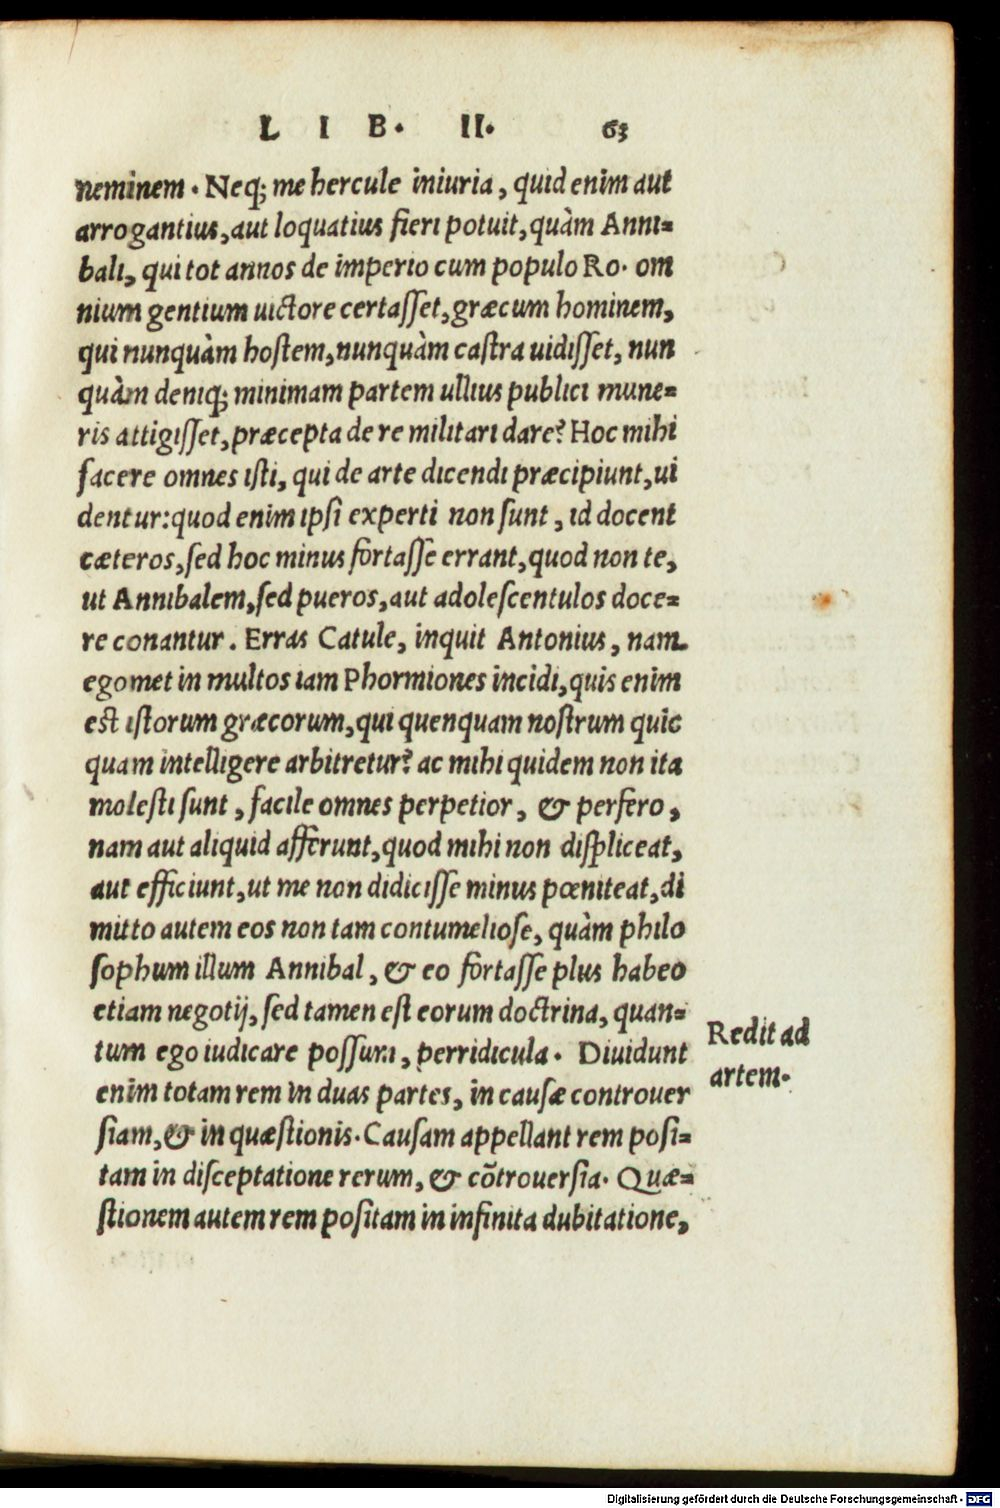 LIB. II. 63
neminem. Neq; me hercule iniuria, quid enim aut
arrogantius, aut loquatius fieri potuit, quàm Anni=
bali, qui tot annos de imperio cum populo Ro. om
nium gentium uictore certaſſet, græcum hominem,
qui nunquàm hoſtem, nunquàm caſtra uidiſſet, nun
quàm deniq; minimam partem ullius publici mune=
ris attigiſſet, præcepta de re militari dare? Hoc mihi
facere omnes iſti, qui de arte dicendi præcipiunt, ui
dentur: quod enim ipſi experti non ſunt, id docent
cæteros, ſed hoc minus fortaſſe errant, quod non te,
ut Annibalem, ſed pueros, aut adoleſcentulos doce=
re conantur. Erras Catule, inquit Antonius, nam
egomet in multos iam Phormiones incidi, quis enim
eſt iſtorum græcorum, qui quenquam noſtrum quic
quam intelligere arbitretur? ac mihi quidem non ita
moleſti ſunt, facile omnes perpetior, & perfero,
nam aut aliquid afferunt, quod mihi non diſpliceat,
aut efficiunt, ut me non didiciſſe minus pœniteat, di
mitto autem eos non tam contumelioſe, quàm philo
ſophum illum Annibal, & eo fortaſſe plus habeo
etiam negotij, ſed tamen eſt eorum doctrina, quan=
tum ego iudicare poſſum, perridicula. Diuidunt
enim totam rem in duas partes, in cauſæ controuer
ſiam, & in quæſtionis. Cauſam appellant rem poſi=
tam in diſceptatione rerum, & cõtrouerſia. Quæ=
ſtionem autem rem poſitam in infinita dubitatione,
Redit ad
artem.
Digitalisierung gefördert durch die Deutsche Forschungsgemeinschaft - DFG